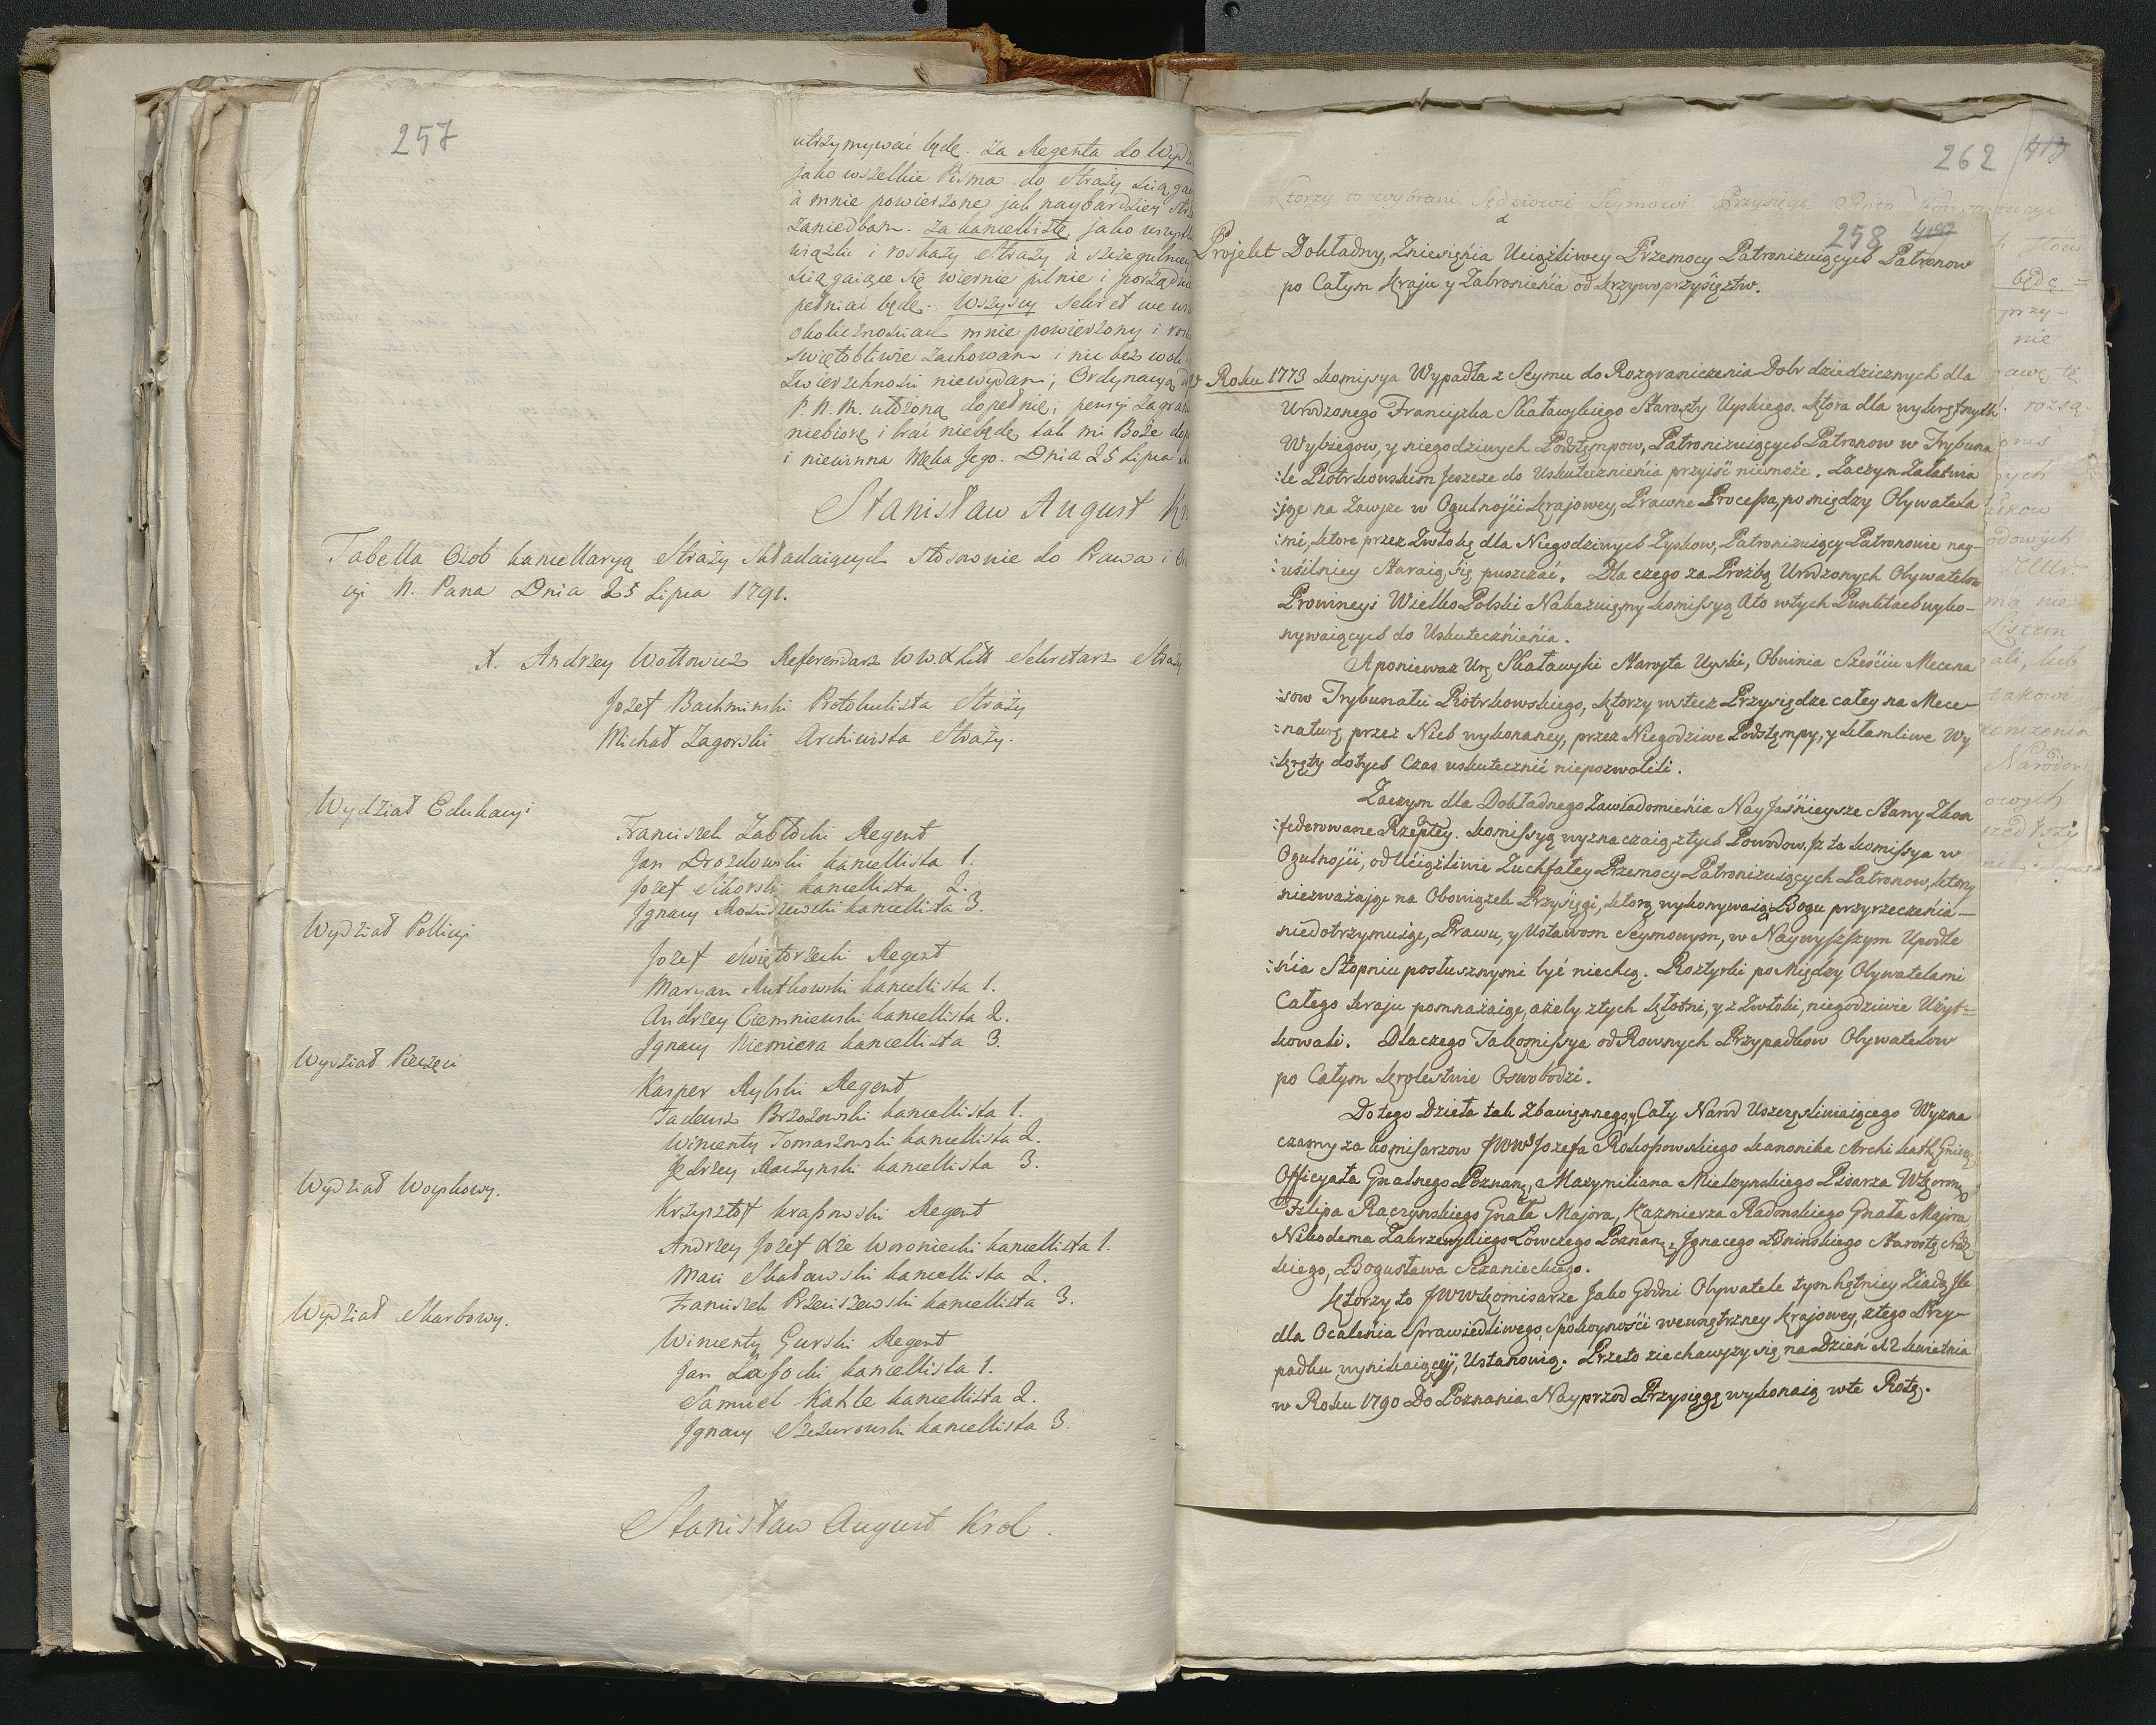 257
utrzymywać będę. Za Regenta do Wydz
jako wszelkie Pisma do Straży ściąga
à mnie powierzone jak naybardziey
zaniedbam. Za kancellistę, jako wszystk
wiązki i roskazy Straży à szczegulnie
ściągaiące się wiernie pilnie i porządn
pełniać będę. Wszyscy Sekret we
okolicznosciach mnie powierzony i
świętobliwie zachowam i nie bez woli
Zwierzchności niewydam; Ordynacyą
P. N. M. ułożoną dopełnię; pensyi zagran
niebiorę i brać niebędę tak mi Boże do
i niewinna Męka Jego. Dnia 25 Lipca
Stanisław August K
Tabella Osob kancellaryą Straży składaiących stosownie do Prawa i
cyi N. Pana Dnia 25 Lipca 1791.
X. Andrzey Wołłowicz Referendarz WWXLitt Sekretarz Straży
Jozef Bachminski Protokulista Straży
Michał Zagorski Archiwista Straży.
Wydział Edukacyi
Franciszek Zabłocki Regent
Jan Drozdowski kancellista 1.
Jozef Sikorski kancellista 2.
Jgnacy kancellista 3.
Wydział Pollicyi
Jozef Swiętorzecki Regent
Maryan Rutkowski kancellista 1.
Andrzey Ciemniewski kancellista 2.
Jgnacy Niemiera kancellista 3.
Wydział Pieczęci
Kasper Rylski Regent
Tadeusz Brzozowski kancellista 1.
Wincenty Tomaszowski kancellista 2.
Jędrzey Raczynski kancellista 3.
Wydział Woyskowy.
Krzysztof Kraſsowski Regent
Andrzey Jozef Xże Woroniecki kancellista 1.
Maci Skaławski kancellista 2.
Franciszek Przeciszewski kancellista 3.
Wydział Skarbowy.
Wincenty Gurski Regent
Jan Zaſocki kancellista 1.
Samuel Kahle kancellista 2.
Jgnacy Szczurowski kancellista 3.
Stanisław August Krol.
262
Ktorzy to wybrani Sędziowie Seymowi Przysięgę
258
Projekt Dokładny, Zniesięnia Uciążliwey Przemocy Patronizuiących Patronow
po Całym kraju y Zabronienia od krzywoprzysięztw.
w Roku 1773 komiſsya Wypadła z Seymu do Rozgraniczenia Dobr dziedzicznych dla
Urodzonego Franciszka Skaławskiego Starosty Uyskiego. ktora dla wykrętnych
Wybiegow, y niegodziwych Podstępow, Patronizuiących Patronow w Trybuna
:le Piotrkowskim Jeszcze do Uskutecznieńia przyiść niemoże. Zaczym Załatwia
:jąc na Zawsze w Ogulnoſci krajowey, Prawne Proceſsa, pomiędzy Obywatela
:mi, ktore przez Zwłokę dla Niegodziwych Zyskow, Patronizuiący Patronowie nay-
:usilniey Staraią się puszczać. Dla czego za Proźbą Urodzonych Obywatelow
Prowincyi Wielko Polski Nakazuięmy komiſsyą Ato wtych Punktach wyko-
nywaiących do Uskutecznieńia.
A ponieważ Ur: Skaławski Starosta Uyski, Obwinia Sześciu Mecena
:sow Trybunału Piotrkowskiego, ktorzy wstecz Przysiędze całey na Mece-
:naturę przez Nich wykonaney, przez Niegodziwe Podstępy, y kłamliwe Wy
:kręty dotych Czas uskutecznić niepozwolili.
Zaczym dla Dokładnego Zawiadomieńia Nayjaśnieysze Stany Zkon
:federowane Rzeptey. komiſsyą wyznaczaią ztych Powodow, iż ta komiſsya w
Ogulnoſci, od Uciążliwie Zuchfałey Przemocy Patronizuiących Patronow, ktorzy
niezważając na Obowiązek Przysięgi, ktorą wykonywaią Bogu przyrzeczeńia
niedotrzymuiąc, Prawu, y Ustawom Seymowym, w Naywyższym Upodle
:ńia Stopniu posłusznymi być niechcą. Roztyrki poMiędzy Obywatelami
Całego kraju pomnażaiąc, ażeby ztych kłotni, y z Zwłoki, niegodziwie Użyt=
kowali. Dlaczego Takomiſsya od Rownych Przypadkow Obywatelow
po Całym krolestwie Oswobodzi.
Do tego Dzieła tak Zbawięnnego, y Cały Narod Uszczęśliwiaiącego Wyzna
czamy za komiſarzow JWWch Jozefa Rokoſsowskiego kanonika Archi kath Gniez
Officyała Gnalnego Poznan:, Maxymiliana Mielzynskiego Pisarza WKoron
Filipa Raczynskiego Gnała Majora, Kazmierza Radonskiego Gnała Majora,
Nikodema Zakrzewskiego Łowczego Poznan:, Jgnacego Starostę
kiego, Bogusława Sczanieckiego.
ktorzy to JWW komisarze Jako Godni Obywatele tym chętniey Ziadą się
dla Ocaleńia Sprawiedliwego, Spokoynośći wewnętrzney krajowey, ztego Przy-
padku wynikaiącey, Ustanowią. Przeto ziechawszy się na Dzień 12 kwietnia
w Roku 1790 Do Poznania. Nayprzod Przysięgę wykonaią wte Rotę.
będę=
przy-
nie
Narodow